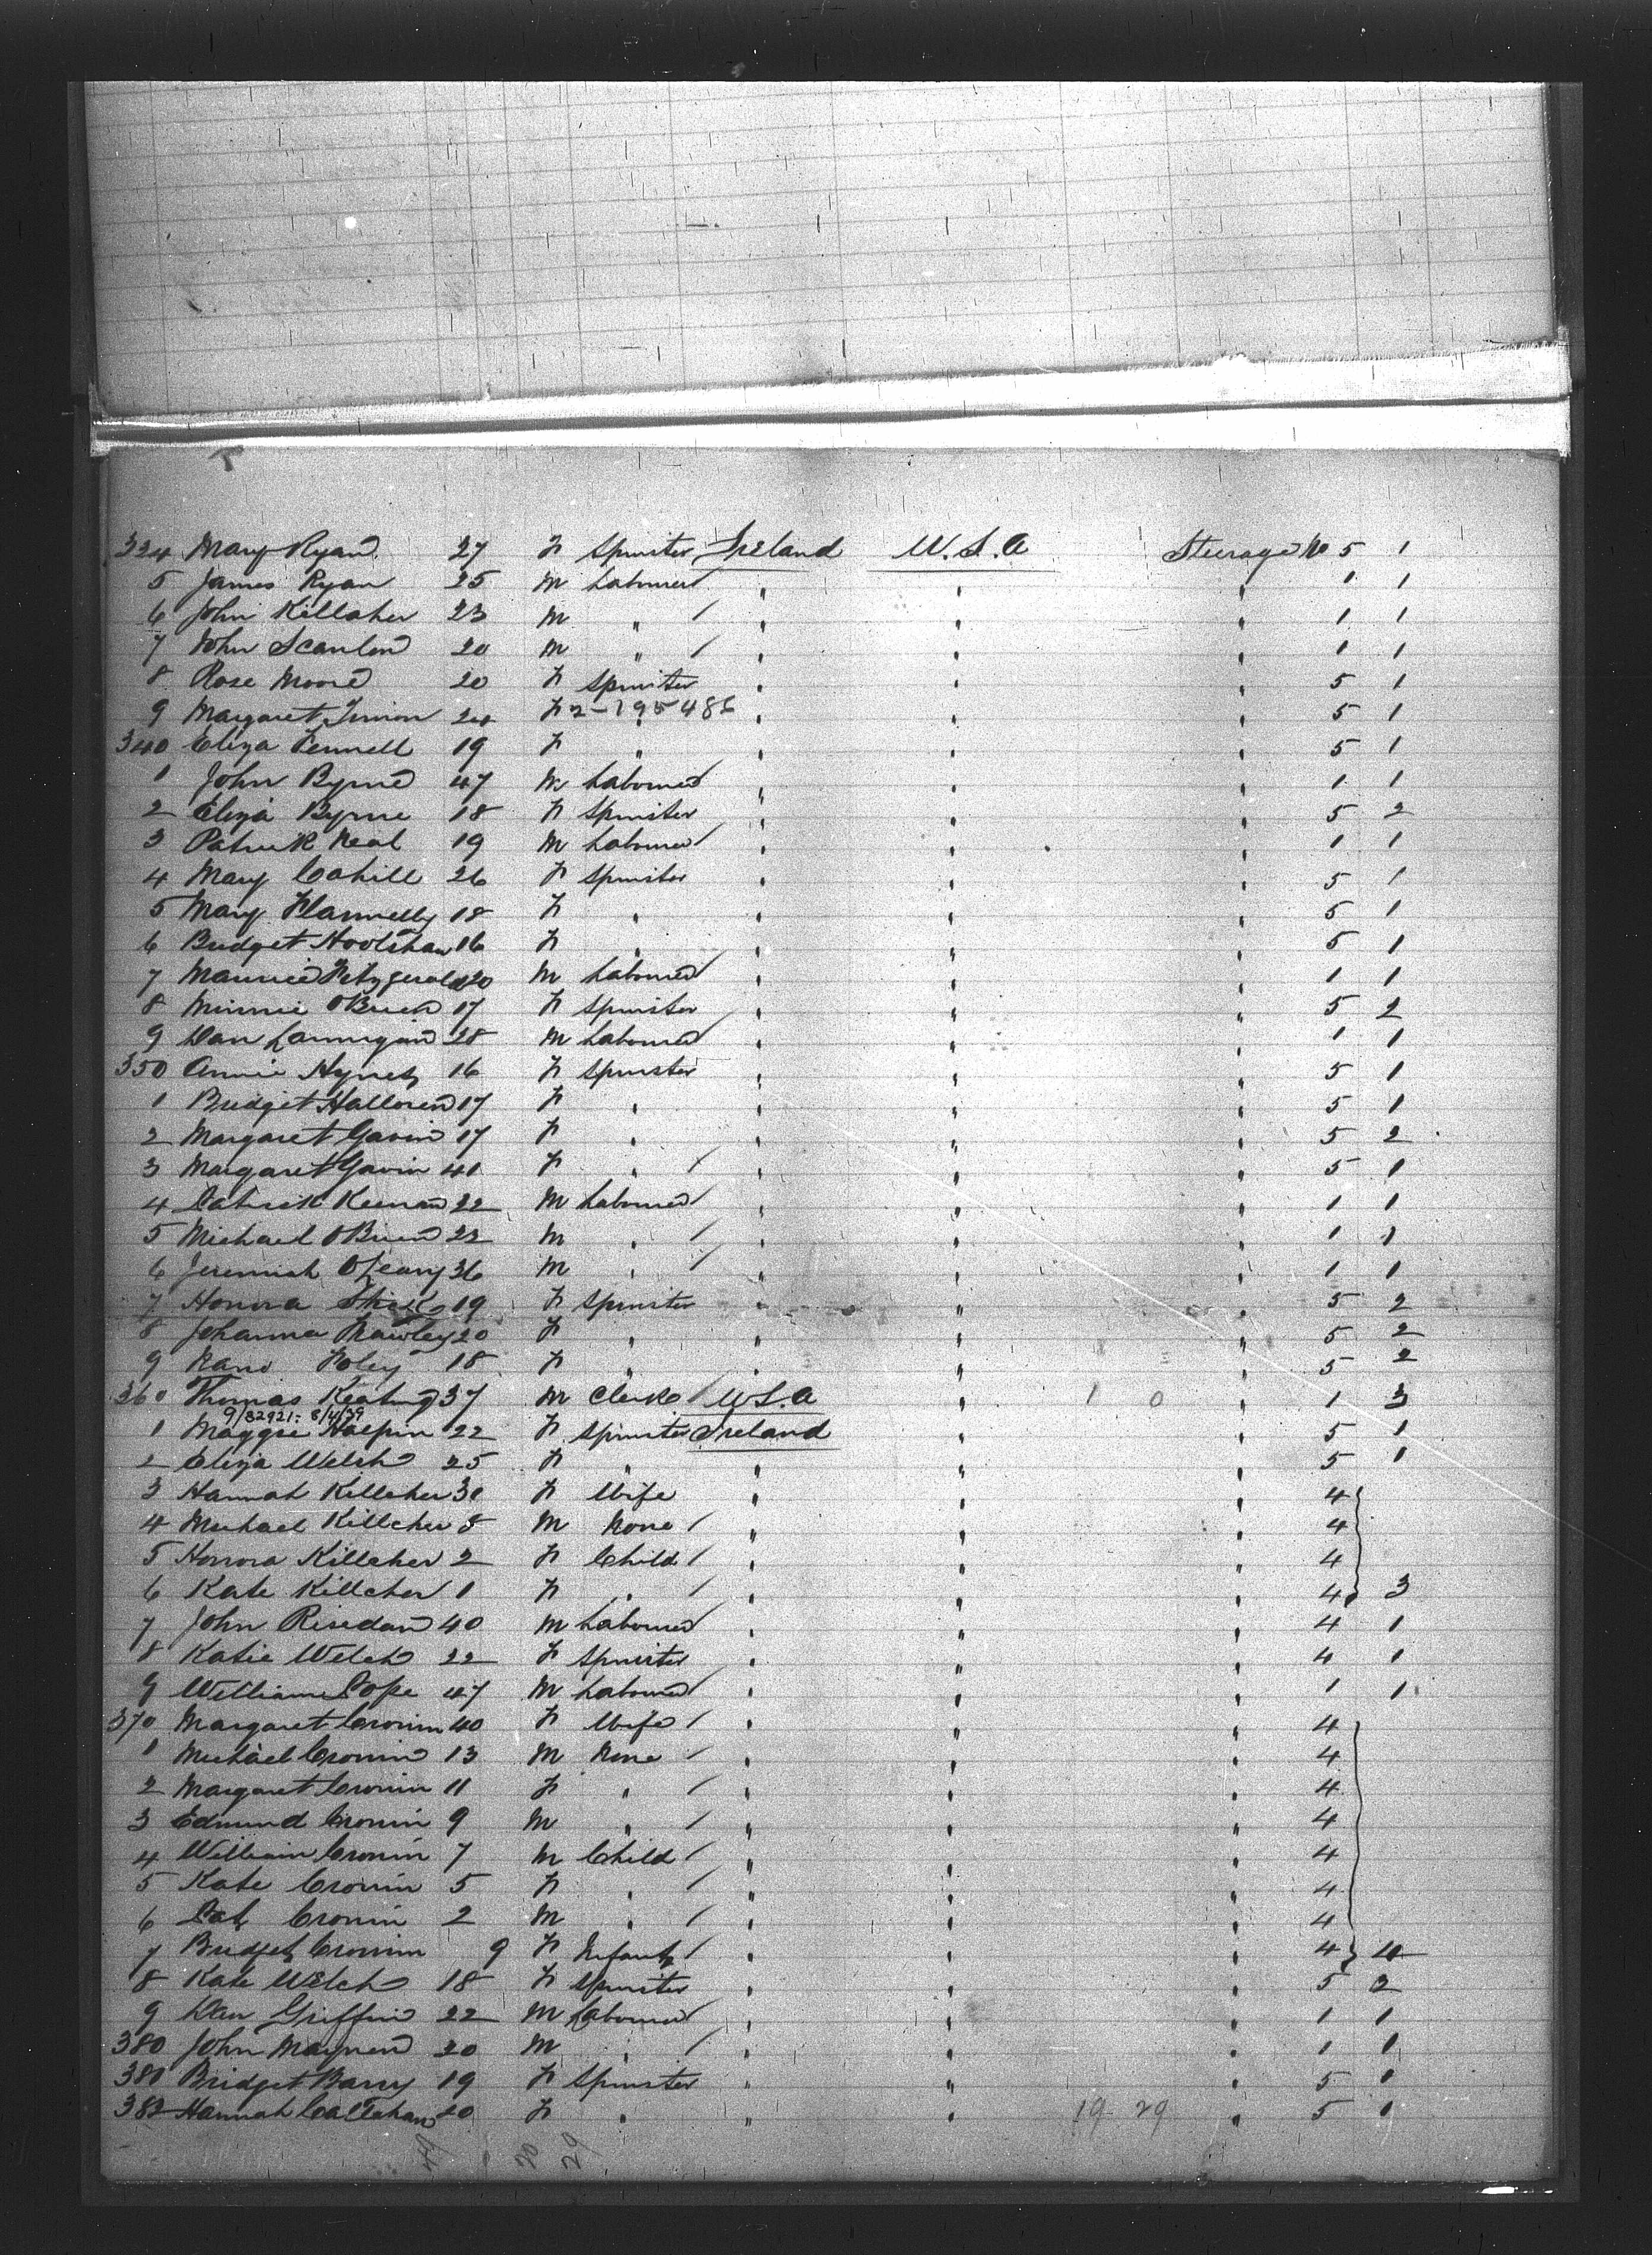 324 Mary Ryan 27 F Spinster Ireland U.S.A Steerage No 5 1
5 James Ryan 25 M Labourer / " " " 1 1
6 John Killaher 23 M " / " " " 1 1
7 John Scanlon 20 M " / " " " 1 1
8 Rose Moore 20 F Spinster " " " 5 1
9 Margaret 24 F 2-195486 " " " 5 1
340 Eliza Fennell 19 F " " " " 5 1
1 John Byrne 47 M Labourer / " " " 1 1
2 Eliza Byrne 18 F Spinster " " " 5 2
3 Patrick Neal 19 M Labourer / " " " 1 1
4 Mary Cahill 26 F Spinster " " " 5 1
5 Mary Flannelly 18 F " " " " 5 1
6 Bridget Hoolihan 16 F " " " " 5 1
7 Maurice Fitzgerald 20 M Labourer / " " " 1 1
8 Minnie OBrien 17 F Spinster " " " 5 2
9 Dan Lannigan 28 M Labourer / " " " 1 1
350 Annie Hynes 16 F Spinster " " " 5 1
1 Bridget Halloren 17 F " " " " 5 1
2 Margaret Gavin 17 F " " " " 5 2
3 Margaret Gavin 40 F " / " " " 5 1
4 Patrick Keenan 22 M Labourer / " " " 1 1
5 Michael OBrien 22 M " / " " " 1 1
6 Jeremiah OLeary 36 M " / " " " 1 1
7 Honora 19 F Spinster " " " 5 2
8 Johanna Frawley 20 F " " " " 5 2
9 Nano Foley 18 F " " " " 5 2
360 Thomas Keating 37 M Clerk / U.S.A 1 0 " 1 3
9/32921- 8/4/39
1 Maggie Halpin 22 F Spinster Ireland " " 5 1
2 Eliza Welsh 25 F " " " " 5 1
3 Hannah Killeher 30 F Wife " " " 4
4 Michael Killeher 8 M None / " " " 4
5 Honora Killeher 2 F Child / " " " 4
6 Kate Killeher 1 F " / " " " 4 3
7 John Riredan 40 M Labourer / " " " 4 1
8 Katie Welch 22 F Spinster " " " 4 1
9 William Pope 47 M Labourer / " " " 1 1
370 Margaret Cronin 40 F Wife / " " " 4
1 Michael Cronin 13 M None / " " " 4
2 Margaret Cronin 11 F " / " " " 4
3 Edmund Cronin 9 M " / " " " 4
4 William Cronin 7 M Child / " " " 4
5 Kate Cronin 5 F " / " " " 4
6 Pat Cronin 2 M " / " " " 4
7 Bridget Cronin 9 F Infant / " " " 4 4
8 Kate Welch 18 F Spinster " " " 5 2
9 Dan Griffin 22 M Labourer / " " " 1 1
380 John 20 M " / " " " 1 1
381 Bridget Barry 19 F Spinster " " " 5 1
382 Hannah Callahan 20 F " " " 19 29 " 5 1
29